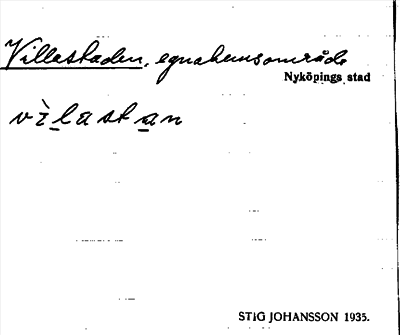 Villastaden, egnahemsområde
Nyköpings stad
vìlastan
STIG JOHANSSON 1935.